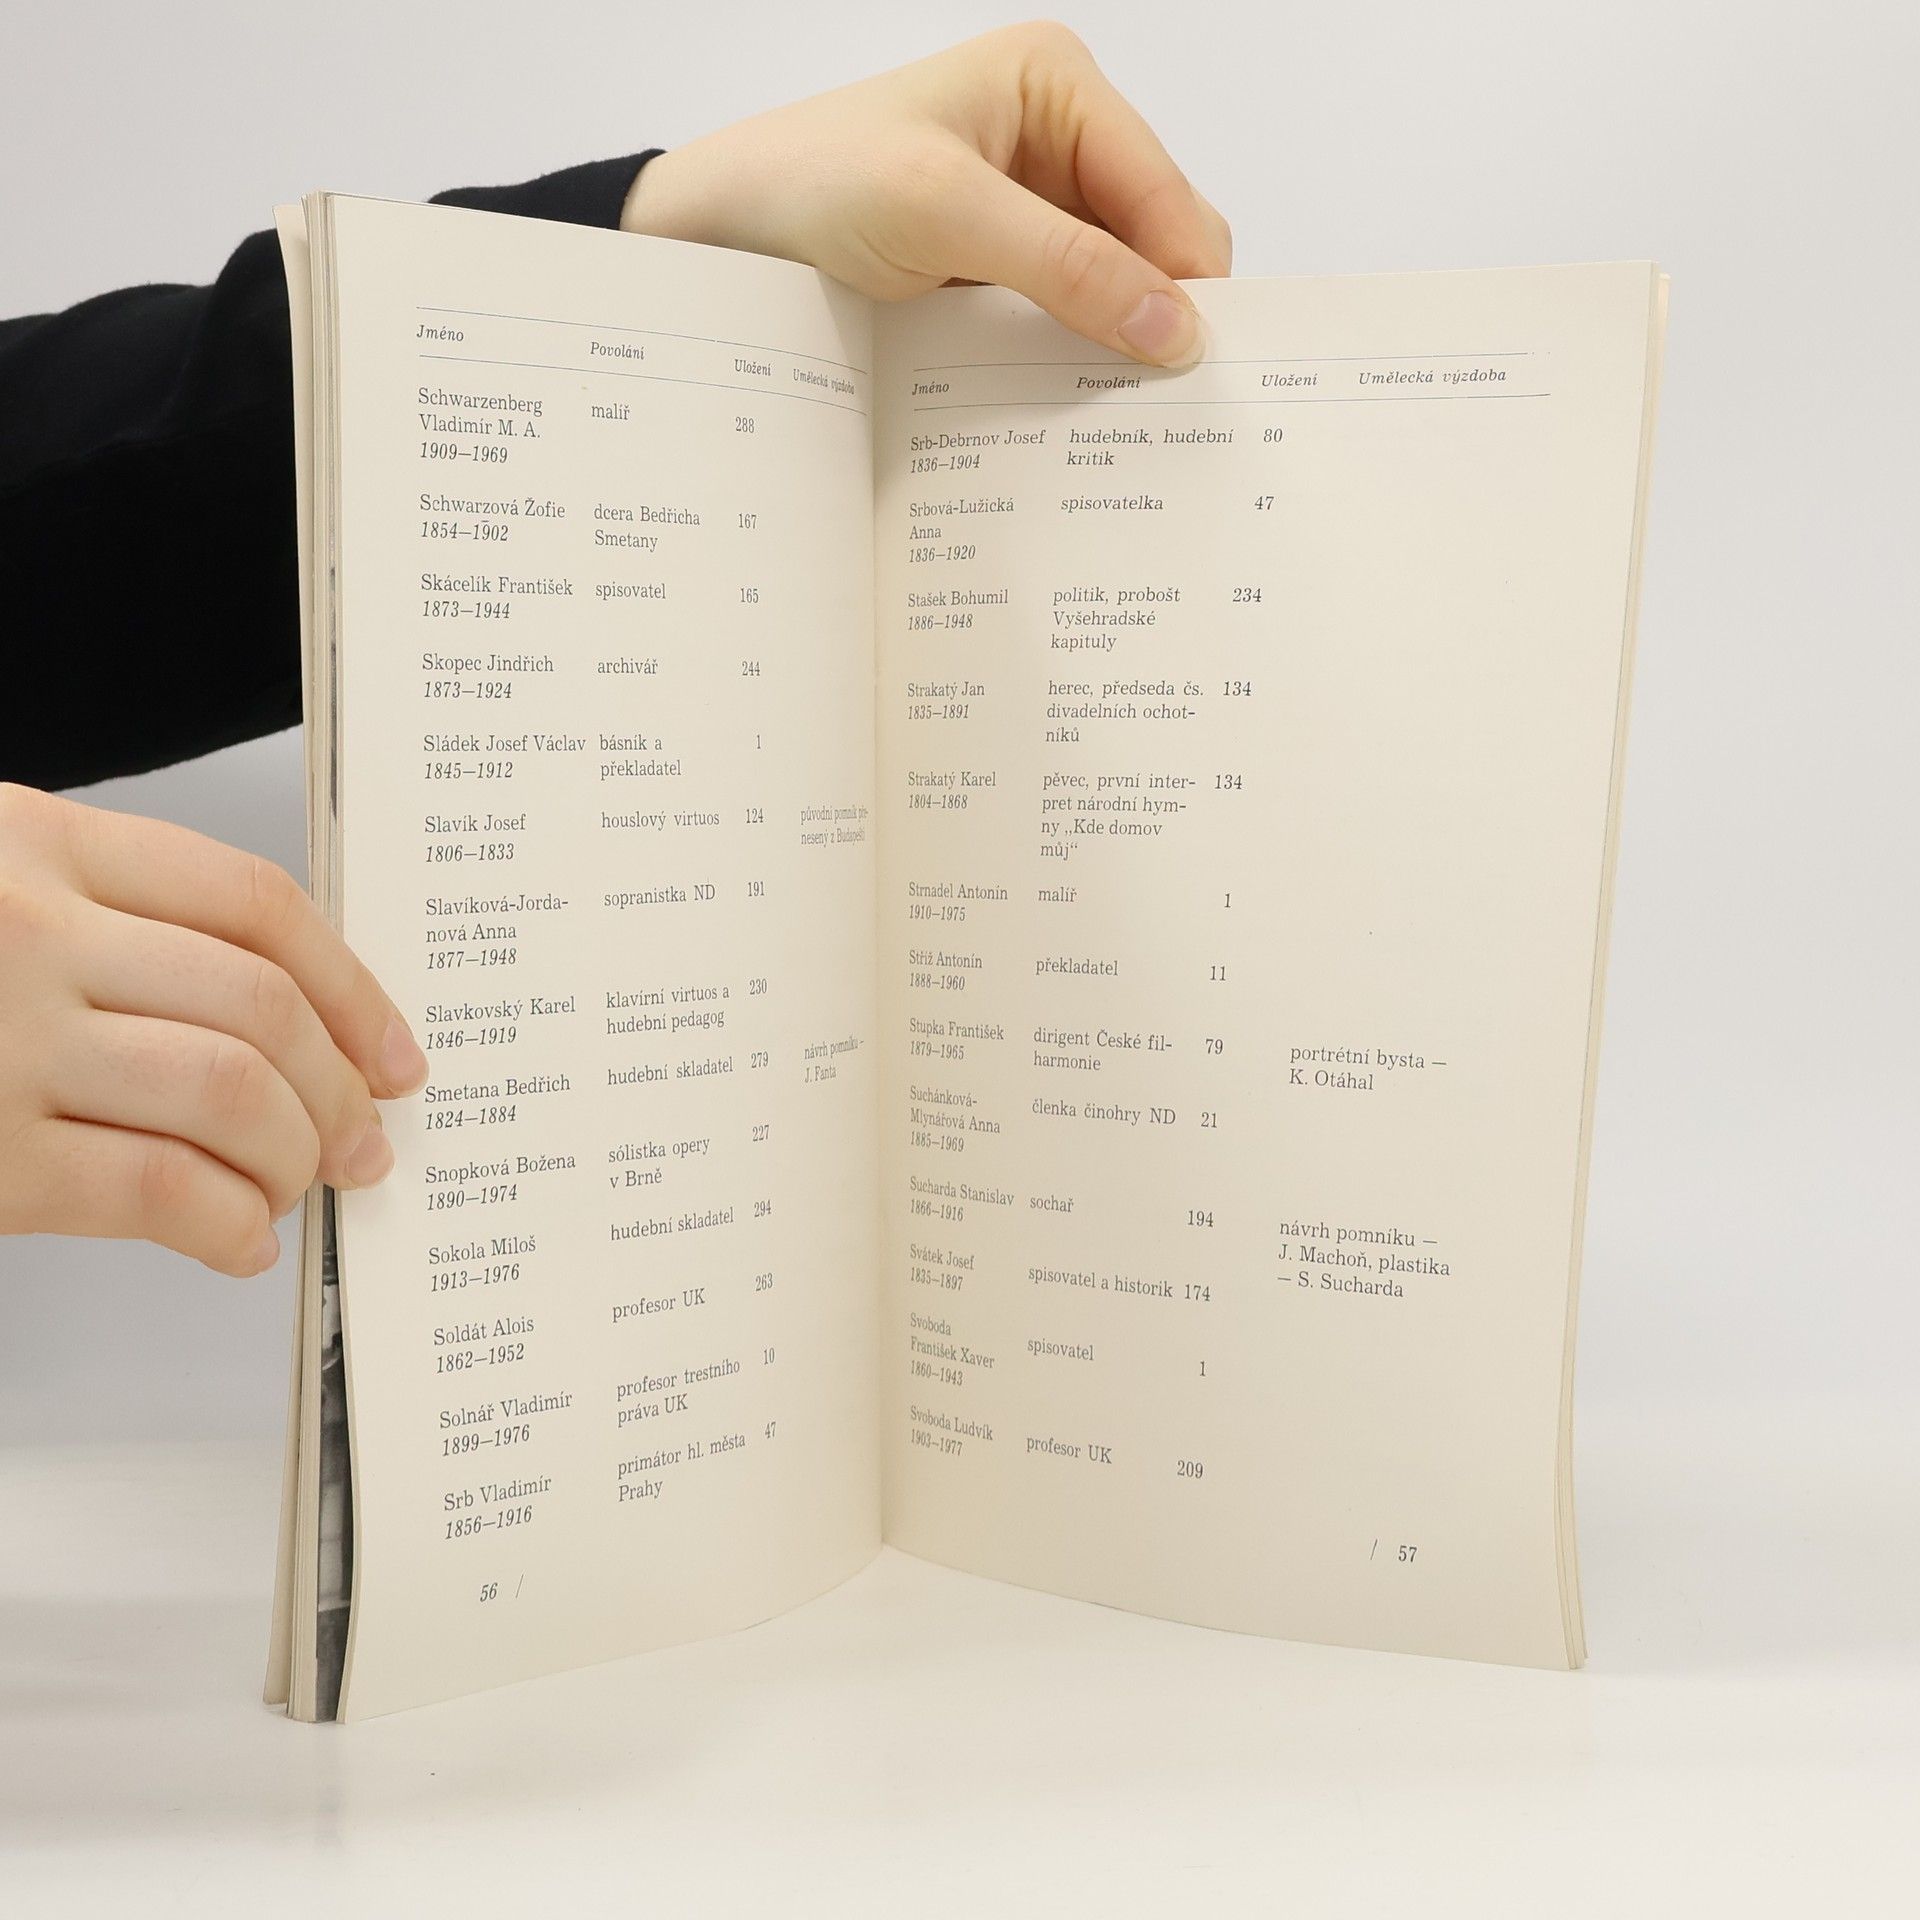 Jméno Povolání Uložení Umělecká výzdoba
Schwarzenberg malíř 288
Vladimír M. A.
1909—1969
Schwarzová Žofie dcera Bedřicha 167
1854—1902 Smetany
Skácelík František spisovatel 165
1873—1944
Skopec Jindřich archivář 244
1873—1924
Sládek Josef Václav básník a 1
1845—1912 překladatel
Slavík Josef houslový virtuos 124 původní pomník pře-
1806—1833 nesený z Budapešti
Slavíková-Jorda- sopranistka ND 191
nová Anna
1877—1948
Slavkovský Karel klavírní virtuos a 230
1846—1919 hudební pedagog
Smetana Bedřich hudební skladatel 279 návrh pomníku —
1824—1884 J. Fanta
Snopková Božena sólistka opery 227
1890—1974 v Brně
Sokola Miloš hudební skladatel 294
1913—1976
Soldát Alois profesor UK 263
1862—1952
Solnář Vladimír profesor trestního 10
1899—1976 práva UK
Srb Vladimír primátor hl. města 47
1856—1916 Prahy
56 /
Jméno Povolání Uložení Umělecká výzdoba
Srb-Debrnov Josef hudebník, hudební 80
1836—1904 kritik
Srbová-Lužická spisovatelka 47
Anna
1836—1920
Stašek Bohumil politik, probošt 234
1886—1948 Vyšehradské
kapituly
Strakatý Jan herec, předseda čs. 134
1835—1891 divadelních ochot-
níků
Strakatý Karel pěvec, první inter- 134
1804—1868 pret národní hym-
ny „Kde domov
můj“
Strnadel Antonín malíř 1
1910—1975
Stříž Antonín překladatel 11
1888—1960
Stupka František dirigent České fil- 79 portrétní bysta —
1879—1965 harmonie K. Otáhal
Suchánková- členka činohry ND 21
Mlynářová Anna
1885—1969
Sucharda Stanislav sochař 194 návrh pomníku —
1866—1916 J. Machoň, plastika
— S. Sucharda
Svátek Josef spisovatel a historik 174
1835—1897
Svoboda spisovatel 1
František Xaver
1860—1943
Svoboda Ludvík profesor UK 209
1903—1977
/ 57